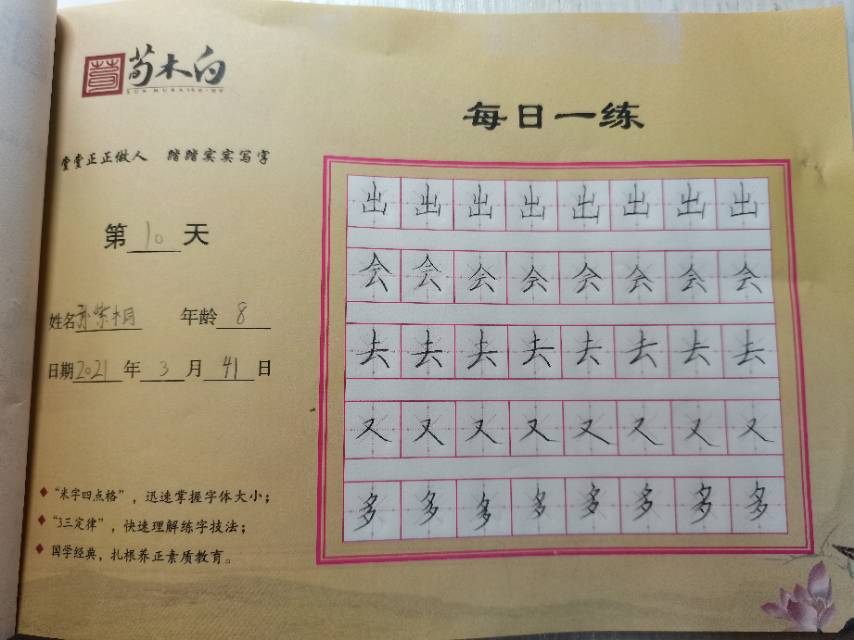 荀木白
每日一练
堂堂正正做人 踏踏实实写字
第10天
姓名孙紫桐 年龄8
日期2021年3月41日
"米字四点格"，迅速掌握字体大小；
"3三定律"，快速理解练字技法；
国学经典，扎根养正素质教育。
出出出出出出出出
会会会会会会会会
去去去去去去去去
又又又又又又又又
多多多多多多多多